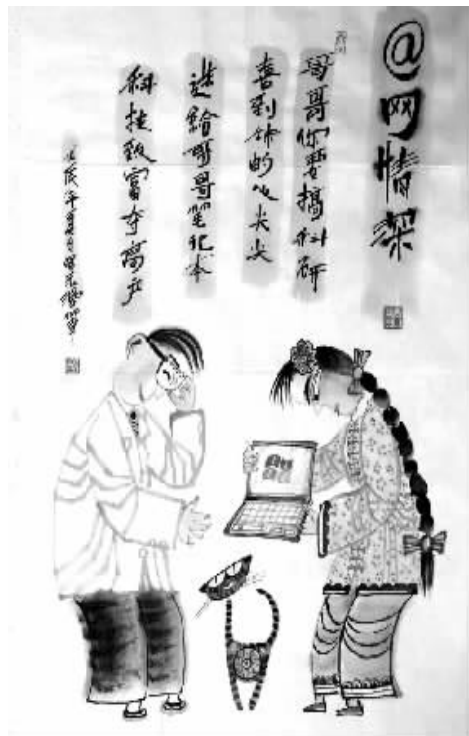 @网情深
哥哥你要搞科研
喜到妹的心尖尖
送給哥哥笔记本
科技致富夺高产